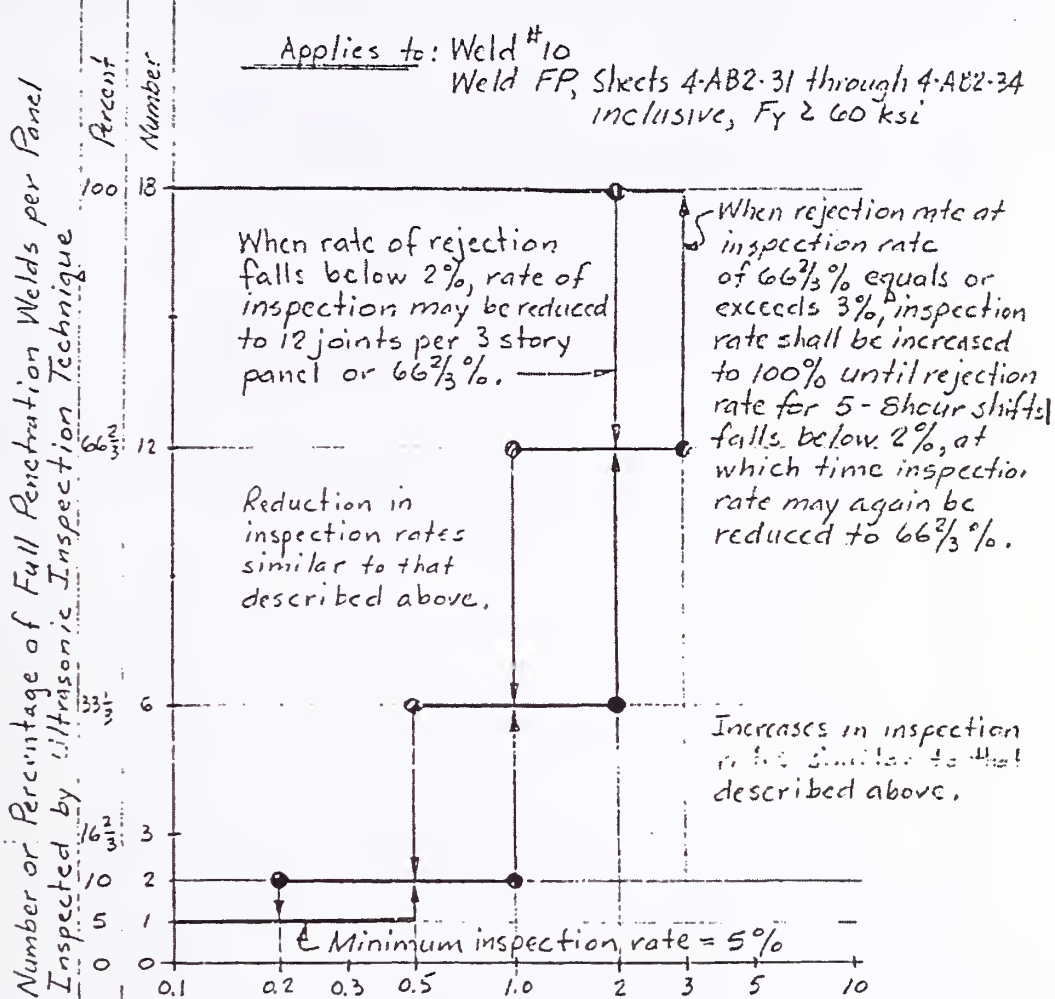 Number or Percentage of Full Penetration Welds per Panel
Inspected by Ultrasonic Inspection Technique
Percent
Number
Applies to: Weld #10
Weld FP, Sheets 4-AB2-31 through 4-AB2-34
inclusive, Fy ≥ 60 ksi
100 18
When rate of rejection
falls below 2%, rate of
inspection may be reduced
to 12 joints per 3 story
panel or 66⅔%.
When rejection rate at
inspection rate
of 66⅔% equals or
exceeds 3%, inspection
rate shall be increased
to 100% until rejection
rate for 5-8hour shifts
falls below 2%, at
which time inspection
rate may again be
reduced to 66⅔%.
66⅔ 12
Reduction in
inspection rates
similar to that
described above.
33⅓ 6
Increases in inspection
similar to that
described above.
16⅔ 3
10 2
5 1
Minimum inspection rate = 5%
0 0
0.1 0.2 0.3 0.5 1.0 2 3 5 10